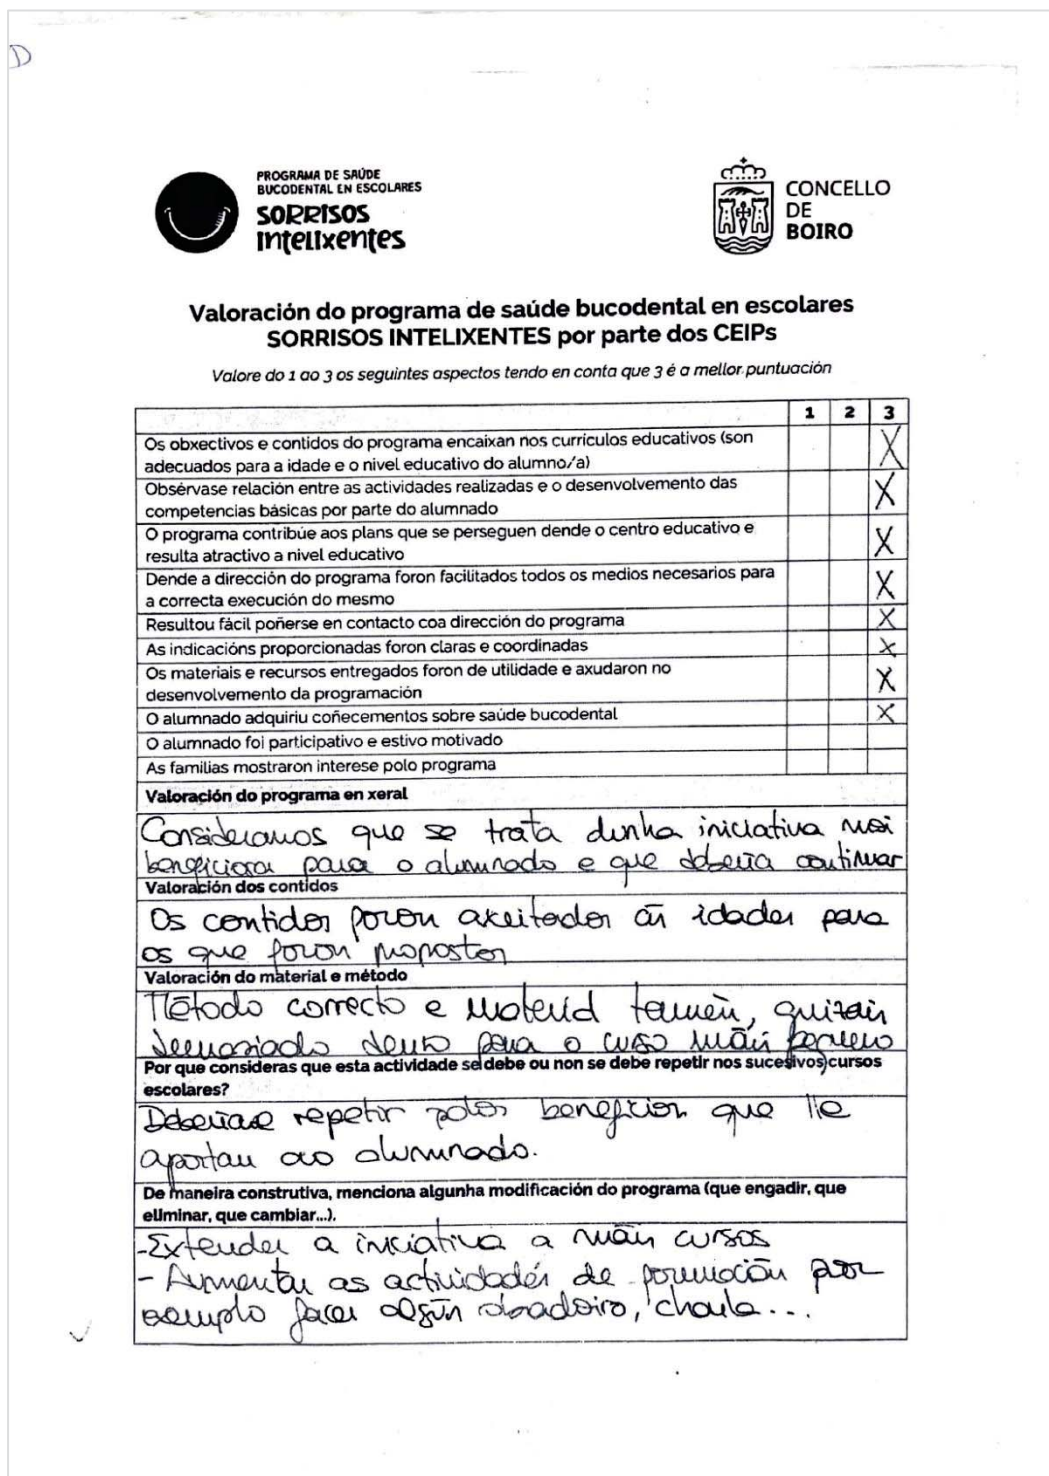 D
PROGRAMA DE SAÚDE
BUCODENTAL EN ESCOLARES
SORRISOS
Intelixentes
CONCELLO
DE
BOIRO
Valoración do programa de saúde bucodental en escolares
SORRISOS INTELIXENTES por parte dos CEIPs
Valore do 1 ao 3 os seguintes aspectos tendo en conta que 3 é a mellor puntuación
1 2 3
Os obxectivos e contidos do programa encaixan nos currículos educativos (son
adecuados para a idade e o nivel educativo do alumno/a) X
Obsérvase relación entre as actividades realizadas e o desenvolvemento das
competencias básicas por parte do alumnado X
O programa contribúe aos plans que se perseguen dende o centro educativo e
resulta atractivo a nivel educativo X
Dende a dirección do programa foron facilitados todos os medios necesarios para
a correcta execución do mesmo X
Resultou fácil poñerse en contacto coa dirección do programa X
As indicacións proporcionadas foron claras e coordinadas X
Os materiais e recursos entregados foron de utilidade e axudaron no
desenvolvemento da programación X
O alumnado adquiriu coñecementos sobre saúde bucodental X
O alumnado foi participativo e estivo motivado
As familias mostraron interese polo programa
Valoración do programa en xeral
Consideramos que se trata dunha iniciativa moi
beneficiosa para o alumnado e que debería continuar
Valoración dos contidos
Os contidos foron axeitados ás idades para
os que foron propostos
Valoración do material e método
Método correcto e material tamén, quizais
demasiado denso para o curso máis pequeno
Por que consideras que esta actividade se debe ou non se debe repetir nos sucesivos cursos
escolares?
Deberíase repetir polos beneficios que lle
aportan ao alumnado.
De maneira construtiva, menciona algunha modificación do programa (que engadir, que
eliminar, que cambiar...).
-Extender a iniciativa a máis cursos
- Aumentar as actividades de formación por
exemplo facer algún obradoiro, charla...